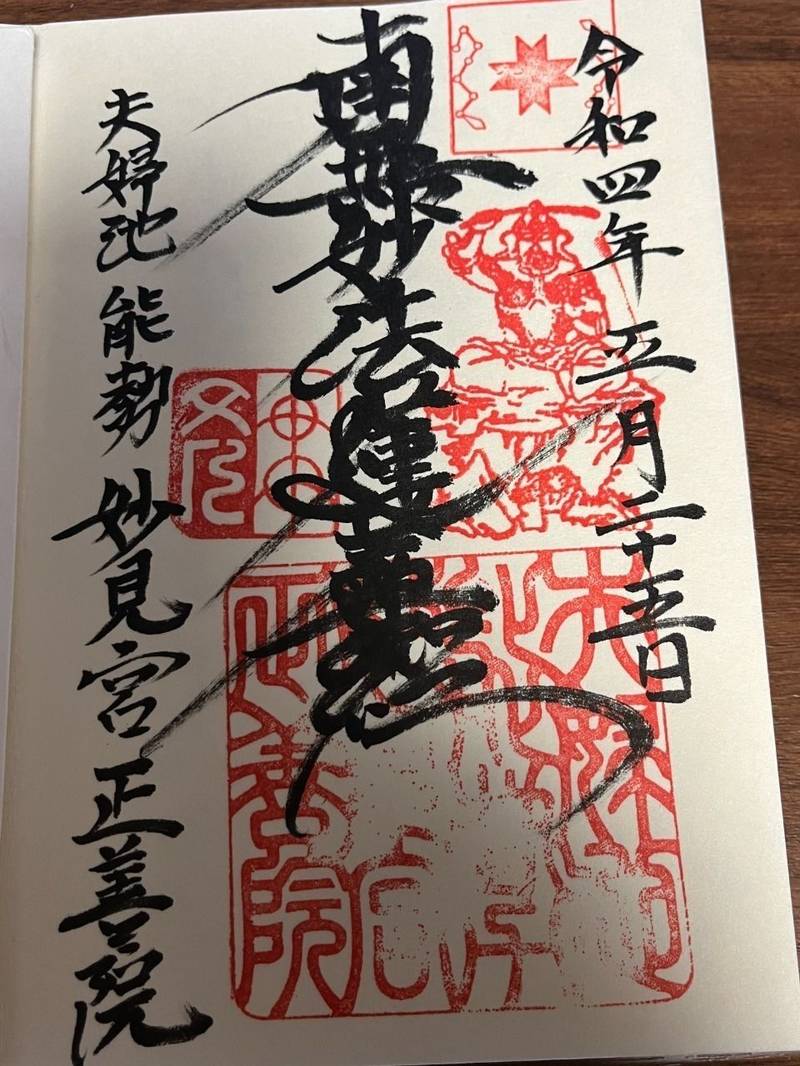 令和四年 五月二十五日
南無妙法蓮華経
夫婦池 能勢 妙見宮 正善院